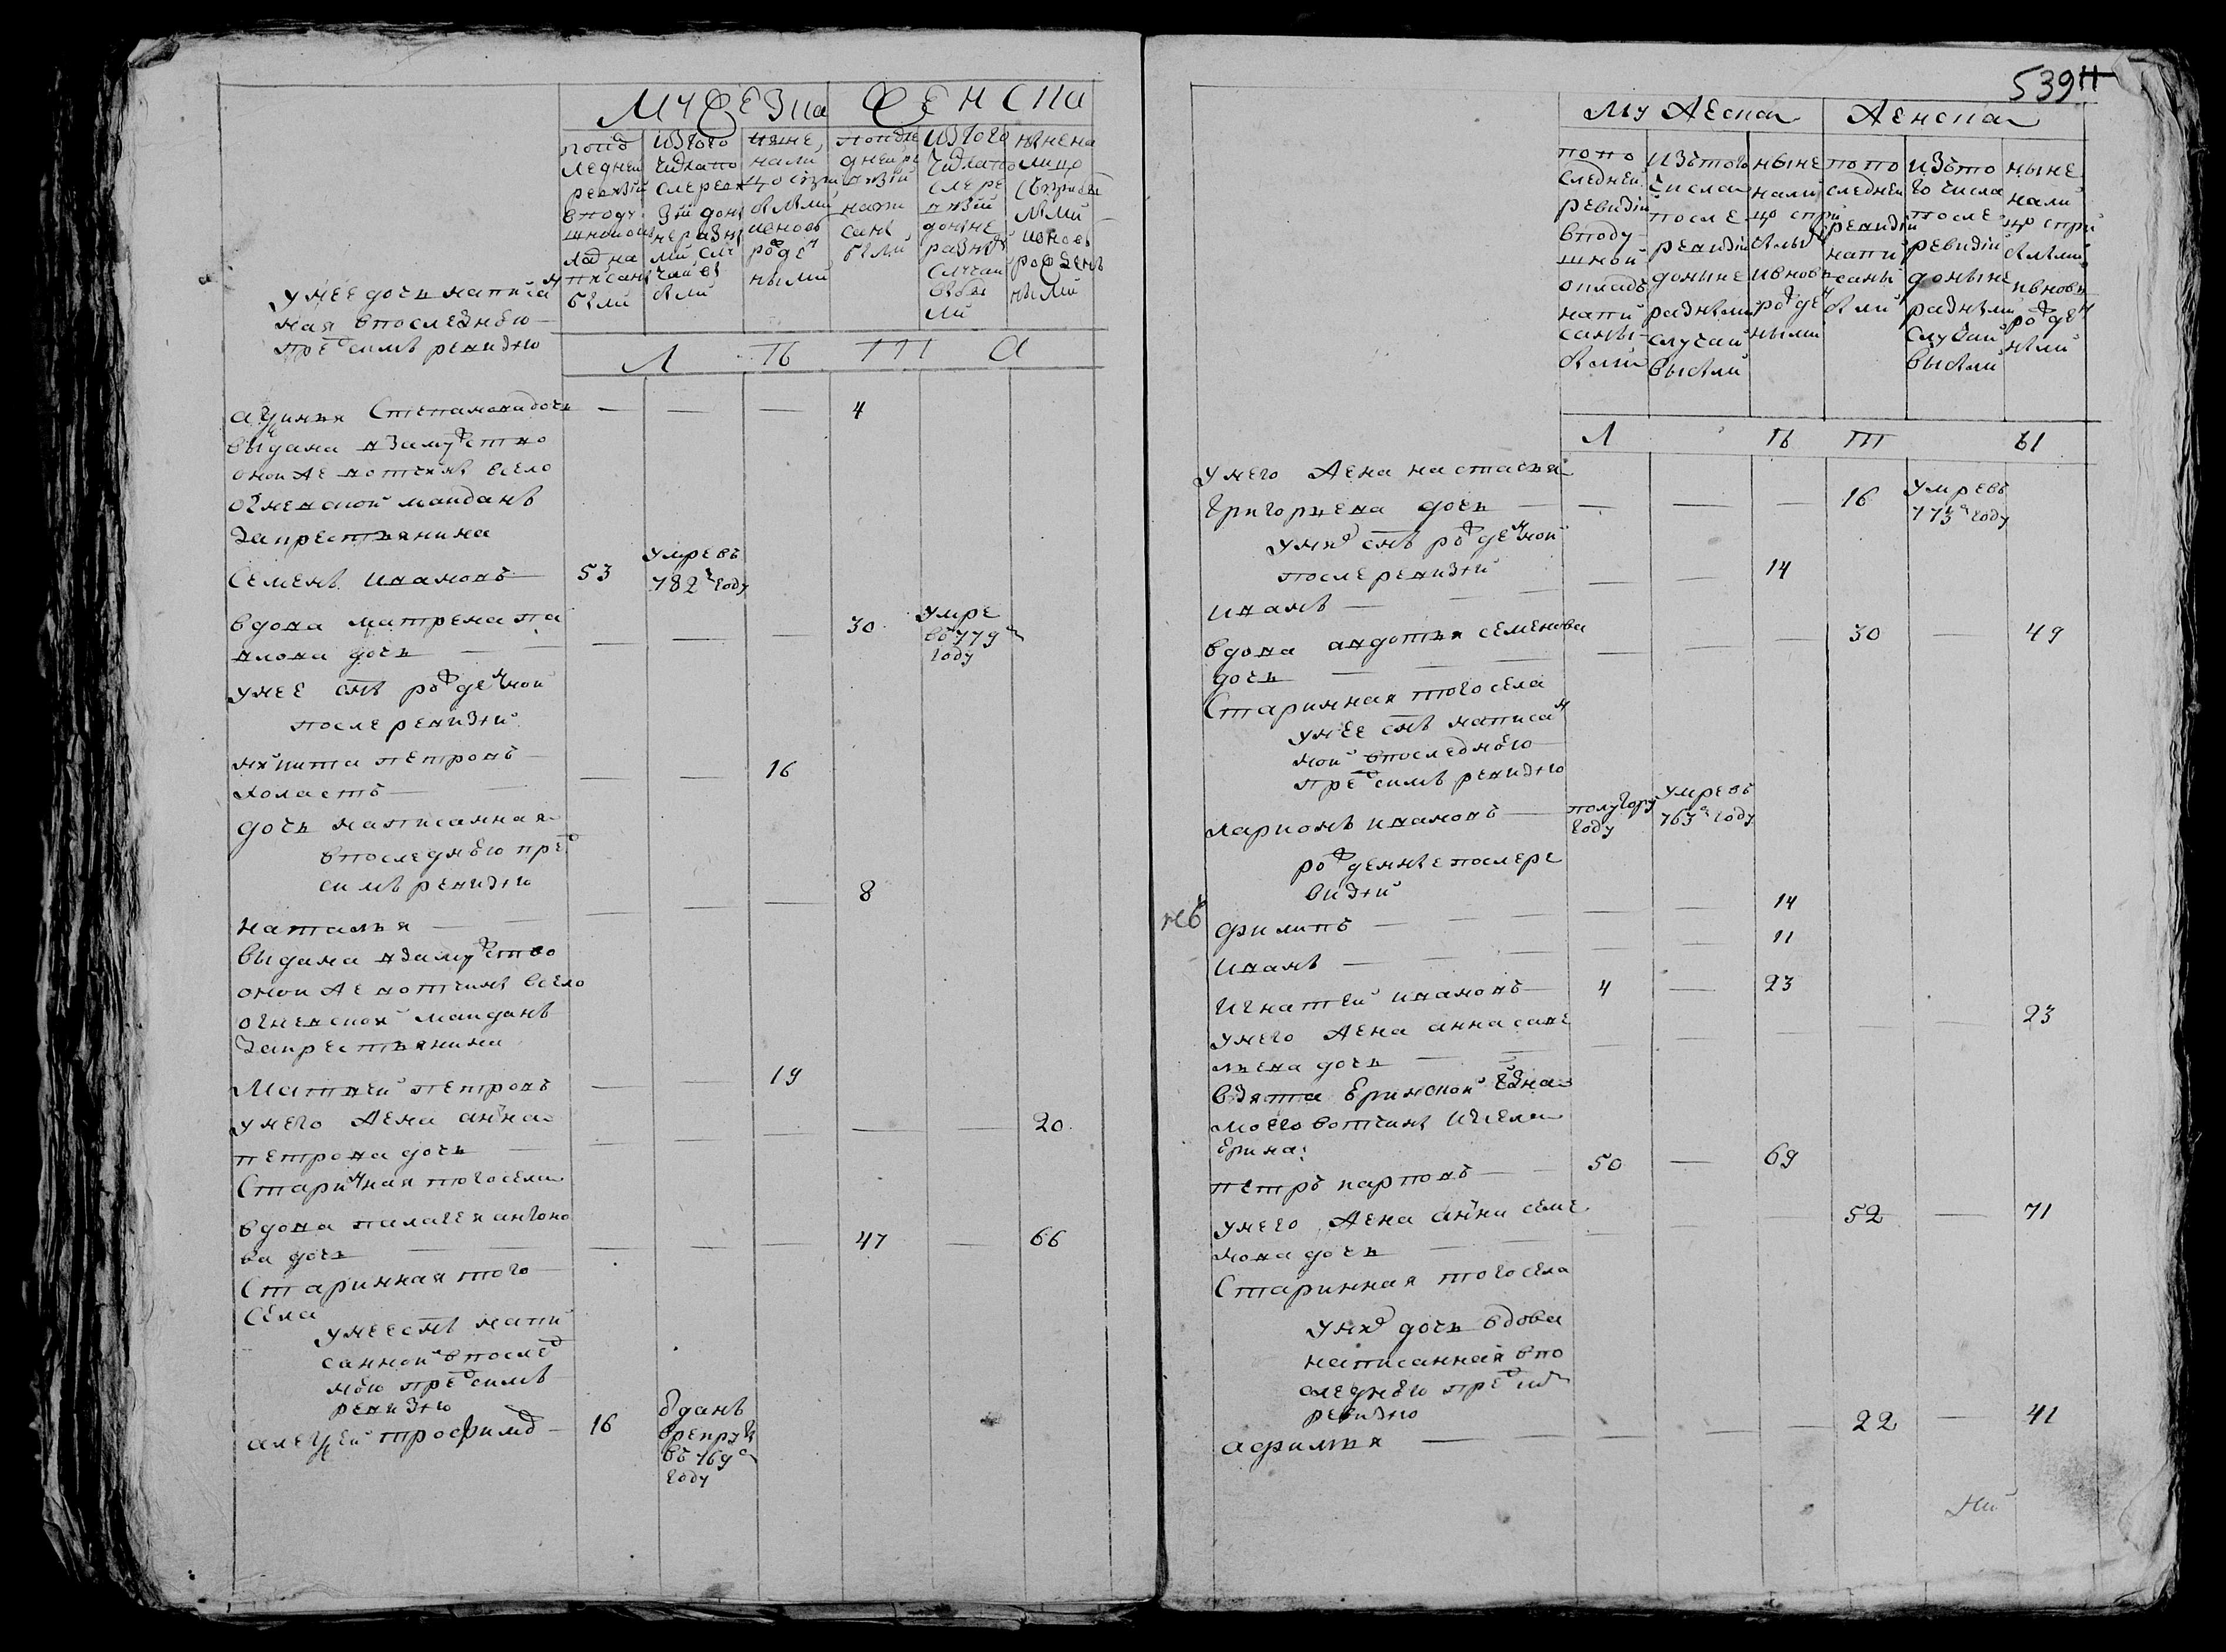 МУЖЕЗКА ЖЕНСКА
попо
леднеи
ревизiи
вподу
шнои ок
лад на
писаны
были
изтого
числапо
слереви
зiи доны
неразны
ми слу
чаи вы
были
ныне
нали
цо спри
былыми
ивновь
рожден
ными
попосле
днеи ре
визiи
напи
саны
были
изтого
числапо
слере
визiи
доныне
разны
случаи
выбы
ли
ныне на
лицо
сприбы
лыми
ивновь
рожден
ными
унее дочь написан
ная впоследнюю
пред симъ ревизию
Л П Ш А
аксинья Степановадочь — — — 4
выдана взамужство
оной же вотчины всело
огневской маиданъ
закрестьянина
Семенъ ивановъ 53 умревъ
782м году
вдова матрена па
влова дочь — — — 30 умре
въ 779м
году
унее сынъ рожденной
после ревизiи
никита петровъ
холастъ — — 16
дочь написанная
впоследнюю пред
симъ ревизию
наталья — — — 8
выдана взамужство
оной же вотчины всело
огневской маиданъ
закрестьянина
Матвей петровъ — — 19
унего жена анна
петрова дочь — — — — — 20
Старинная тогосела
вдова палагея антоно
ва дочь — — — 47 — 66
Старинная того
села
унеесынъ напи
санной впослед
нюю предсимъ
ревизию
алексей трофимов 16 Отданъ
врекруты
въ 769м
году
539
Мужеска Женска
попо
следней
ревизiи
вподу
шной
окладъ
напи
саны
были
изътого
числа
после
ревизiи
доныне
разными
случаи
выбыли
ныне
нали
цо спри
былыми
ивновь
рожден
ными
попо
следней
ревизiи
напи
саны
были
изъто
го числа
после
ревизiи
доныне
разными
случаи
выбыли
ныне
нали
цо спри
былыми
ивновь
рожден
ными
Л П Ш Ы
унего жена настасья
григорьева дочь — — — 16 умревъ
773м году
уних сынъ рожденной
после ревизiи
иванъ — — — 14
вдова авдотья семенова
дочь — — — 30 — 49
Старинная того села
унее сынъ написан
ной впоследнюю
пред симъ ревизию
ларионъ ивановъ полутору
году умревъ
767м году
рожденные послере
визiи
филипъ — — 14
иванъ — — 11
игнатей ивановъ 4 — 23
унего жена анна саве
льева дочь — — — — — 23
взята ериской
моего вотчины исела
ерина
петръ карповъ 50 — 69
унего жена анна семе
нова дочь — — — 52 — 71
Старинная того села
уних дочь вдова
написанная впо
следнюю пред
ревизию
афимья — — — 22 — 41